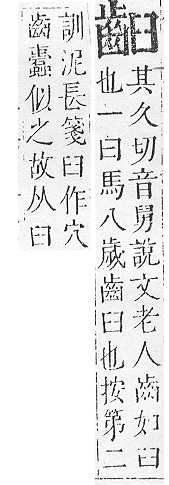 齨
其久切音舅說文老人齒如臼
也一曰馬八歲齒臼也按第二
訓泥長箋臼作穴
齒蠹似之故从臼